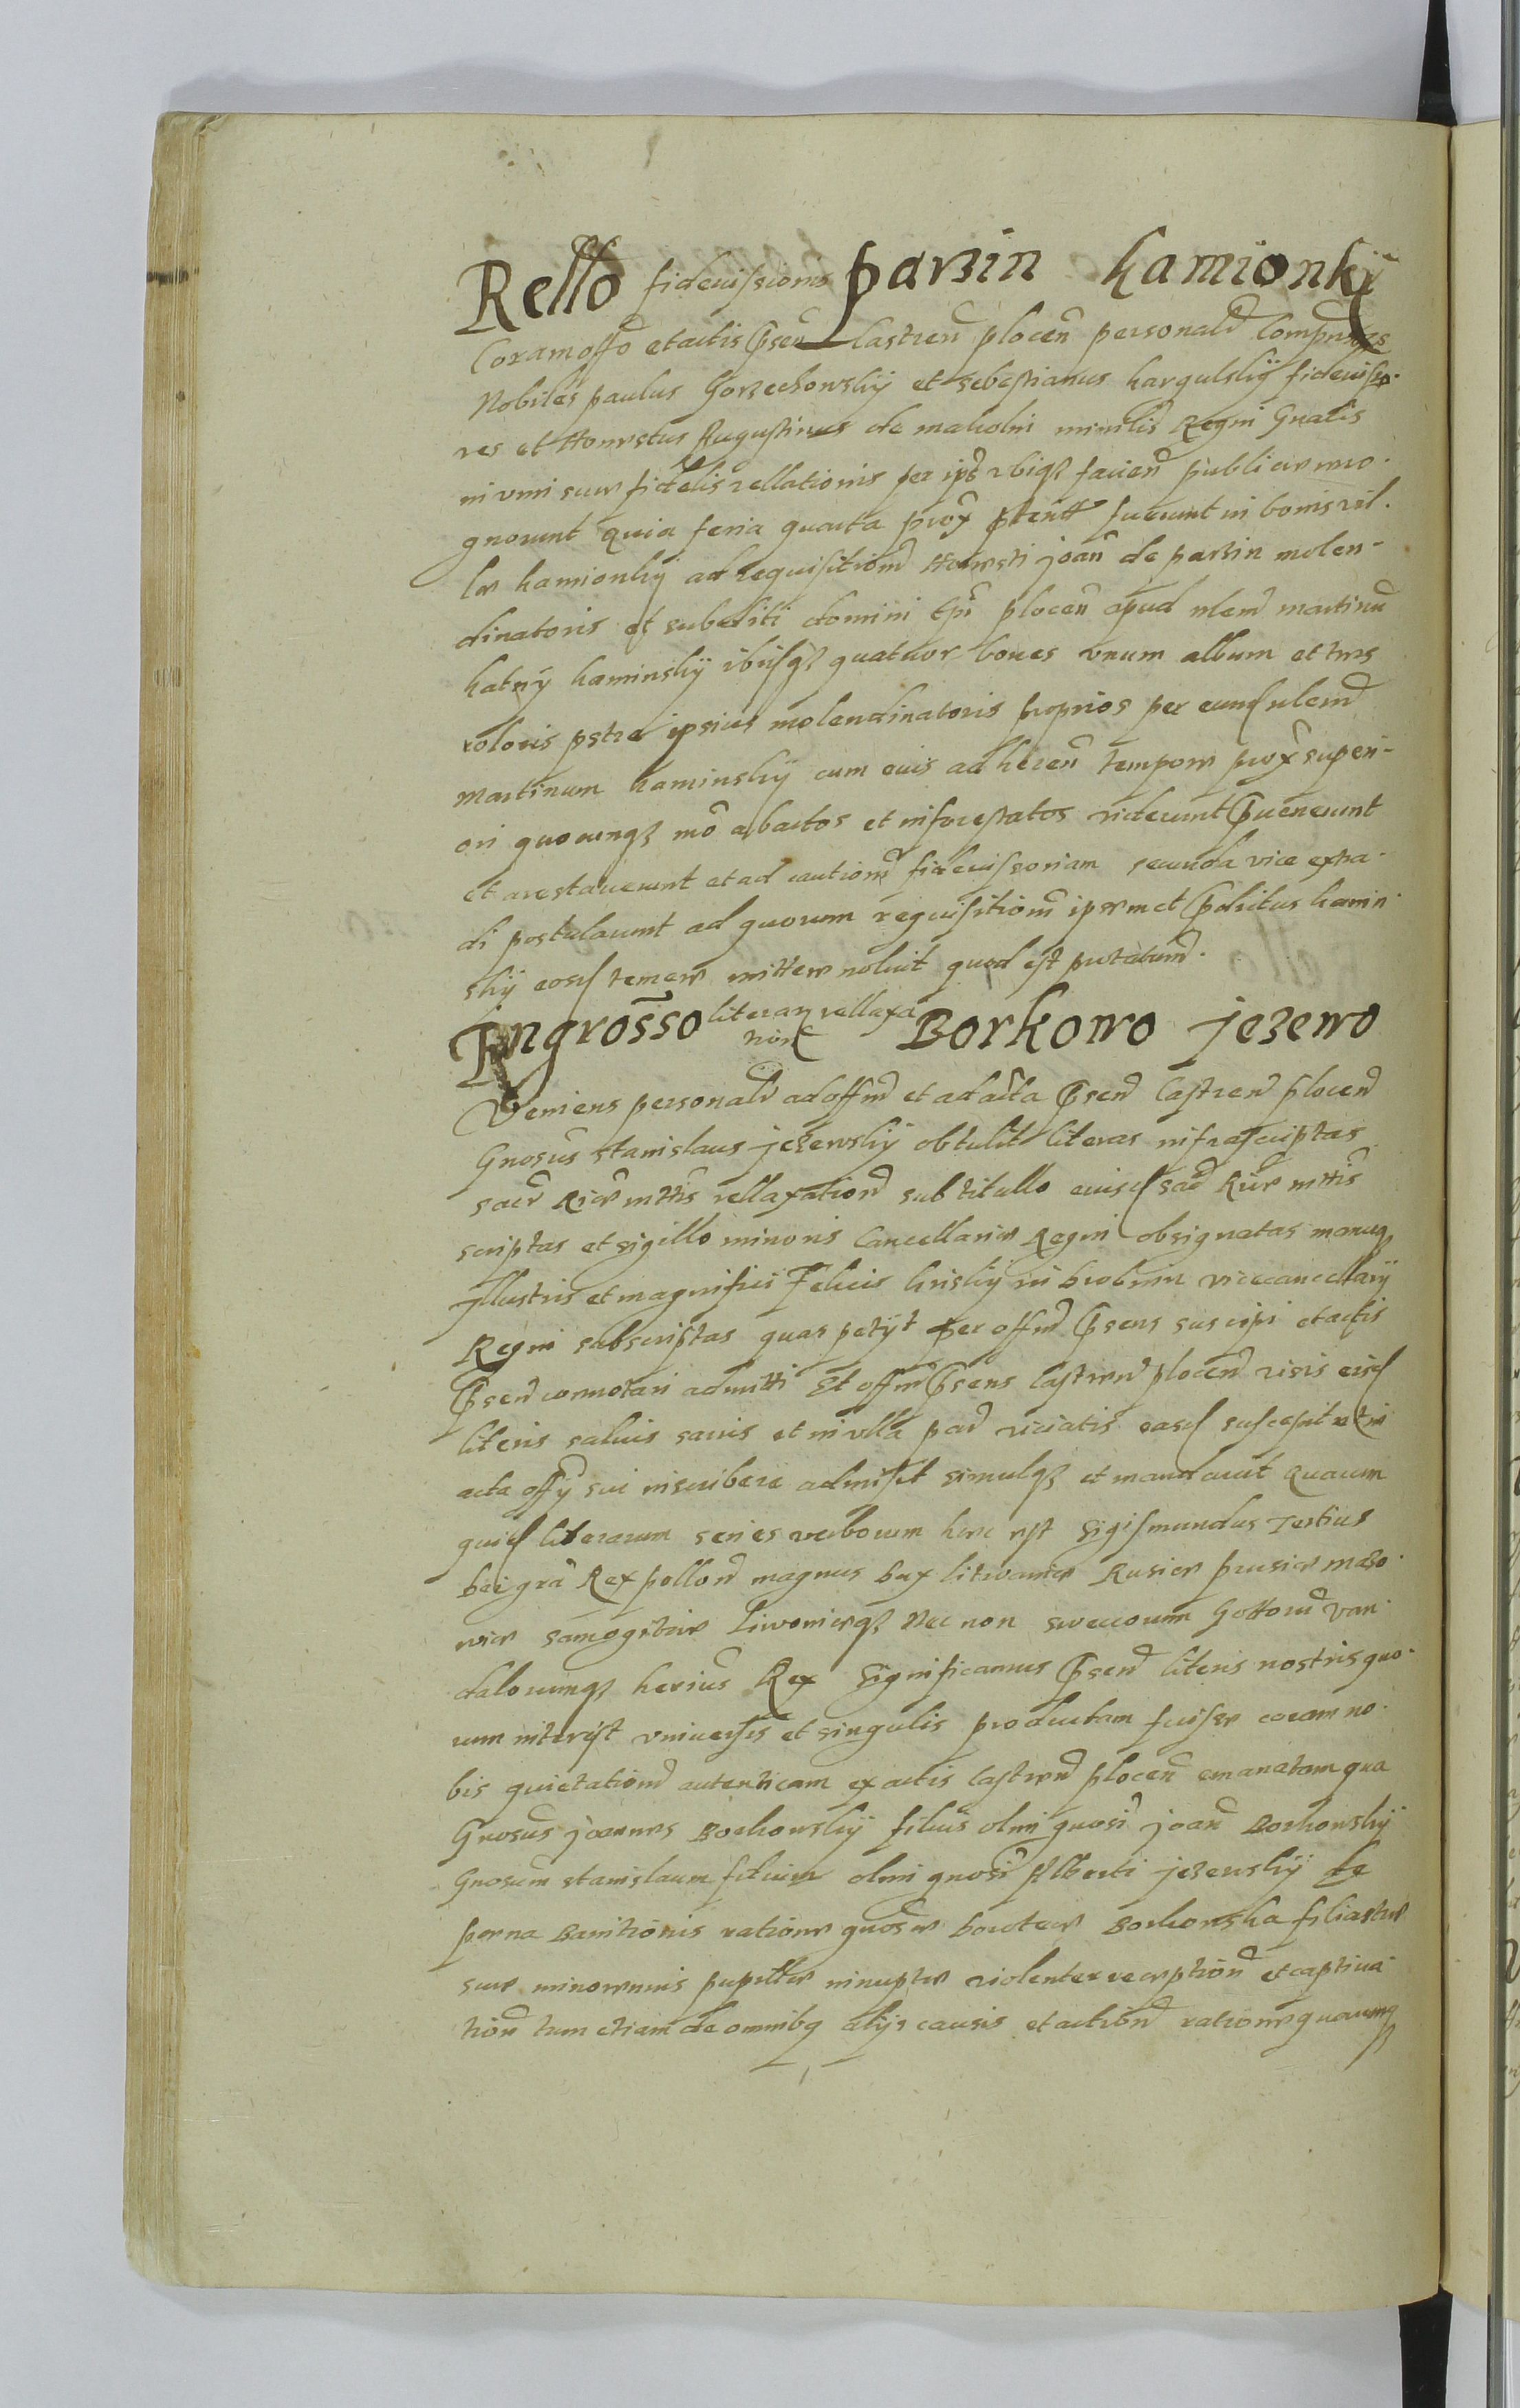 Rello fideiussionis Parzin Kamionky
Coram offo et actis psen Castren plocen personalr Comparentes
Nobiles paulus Gorzechowskÿ et sebestianus kargulskÿ fideiusso-
res et Honestus Augustinus de malsolni minilis Regni Gnalis
in vim suæ fidelis rellationis per ips vbiqȝ facien publice reco-
gnorunt quia feria quarta prox pterita fuerunt in bonis vil-
læ kamionkÿ ad requisitionē Honesti joan de parzin molen-
dinatoris et subditi domini Epi plocen apud nlem martinū
hatnÿ kaminskÿ ibiqȝ quatuor boues vnum album et tres
coloris pstre ipsius molendinatoris proprios per eund nlem
martinum kaminskÿ cum eius adheren tempore prox superi-
ori quocunqȝ mo abactos et inforestatos viderunt puenerunt
et arestauerunt et ad cautionē fideiussoriam secunda vice extra-
di postularunt ad quorum requisitionē ipsemet pdictus kamin-
skÿ eosd temere mittere noluit quod est protatum.
Ingrosso literar rellaxa
tionis Borkowo jezewo
Veniens personalr ad offm et ad acta psen Castren plocen
Gnosus stanislaus jezewskÿ obtulit literas infrascriptas
sacr Riæ mttis rellaxation sub titullo eiusd sac Riæ mttis
scriptas et sigillo minoris Cancellariæ Regni obsignatas manuqȝ
Jllustris et magnifici Felicis kriskÿ in drobnin vicecancellarÿ
Regni subscriptas quas petÿt per offm psens suscipi et actis
psen connotari admitti Et offm psens Castren plocen visis eisd
literis saluis sanis et in vlla par viciatis easd suscepit et in
acta offÿ sui inscribere admisit simulqȝ et mandauit Quarum
quid literarum series verborum hæc est Sigismundus Tertius
Dei gra Rex pollon magnus Dux Litwaniæ Rusiæ prusiæ mazo-
wiæ samogitiæ Liwoniæqȝ Nec non sweccorum Gottorū van-
dalorumqȝ herius Rex Significamus psen literis nostris quo-
rum interest vniuersis et singulis productam fuisse coram no-
bis quietationē autenticam ex actis Castren plocen emanatam qua
Gnosus joannes Borkowskÿ filius olim gnosi joan Borkowskÿ
Gnosum stanislaum filium olim gnosi Alberti jezewskÿ de
pœna Banitionis ratione gnosæ doroteæ Borkowska filiastræ
suæ minorennis pupillæ innuptæ violenter reception et captiua-
tion tum etiam de omnibq alÿs causis et action rationequacunqȝ